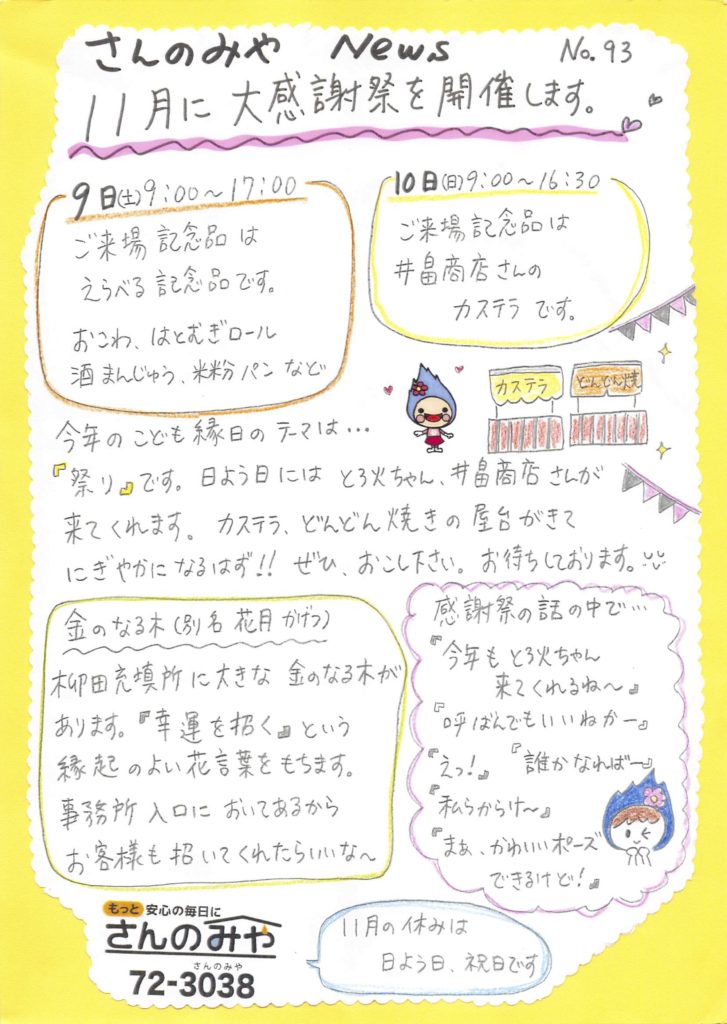 さんのみや News No.93
11月に大感謝祭を開催します。
9日(土)9:00〜17:00
ご来場記念品は
えらべる記念品です。
おこわ、はとむぎロール
酒まんじゅう、米粉パンなど
10日(日)9:00〜16:30
ご来場記念品は
井畠商店さんの
カステラです。
カステラ
どんどん焼
今年のこども縁日のテーマは…
『祭り』です。日よう日にはとろ火ちゃん、井畠商店さんが
来てくれます。カステラ、どんどん焼きの屋台がきて
にぎやかになるはず!!ぜひ、おこし下さい。お待ちしております。
金のなる木(別名 花月かげつ)
柳田充填所に大きな金のなる木が
あります。『幸運を招く』という
縁起のよい花言葉をもちます。
事務所入口においてあるから
お客様も招いてくれたらいいな〜
感謝祭の話の中で…
『今年もとろ火ちゃん
来てくれるね〜』
『呼ばんでもいいねかー』
『えっ!』『誰かなればー』
『私らからけ〜』
『まぁ、かわいいポーズ
できるけど!』
もっと 安心の毎日に
さんのみや
さんのみや
72-3038
11月の休みは
日よう日、祝日です